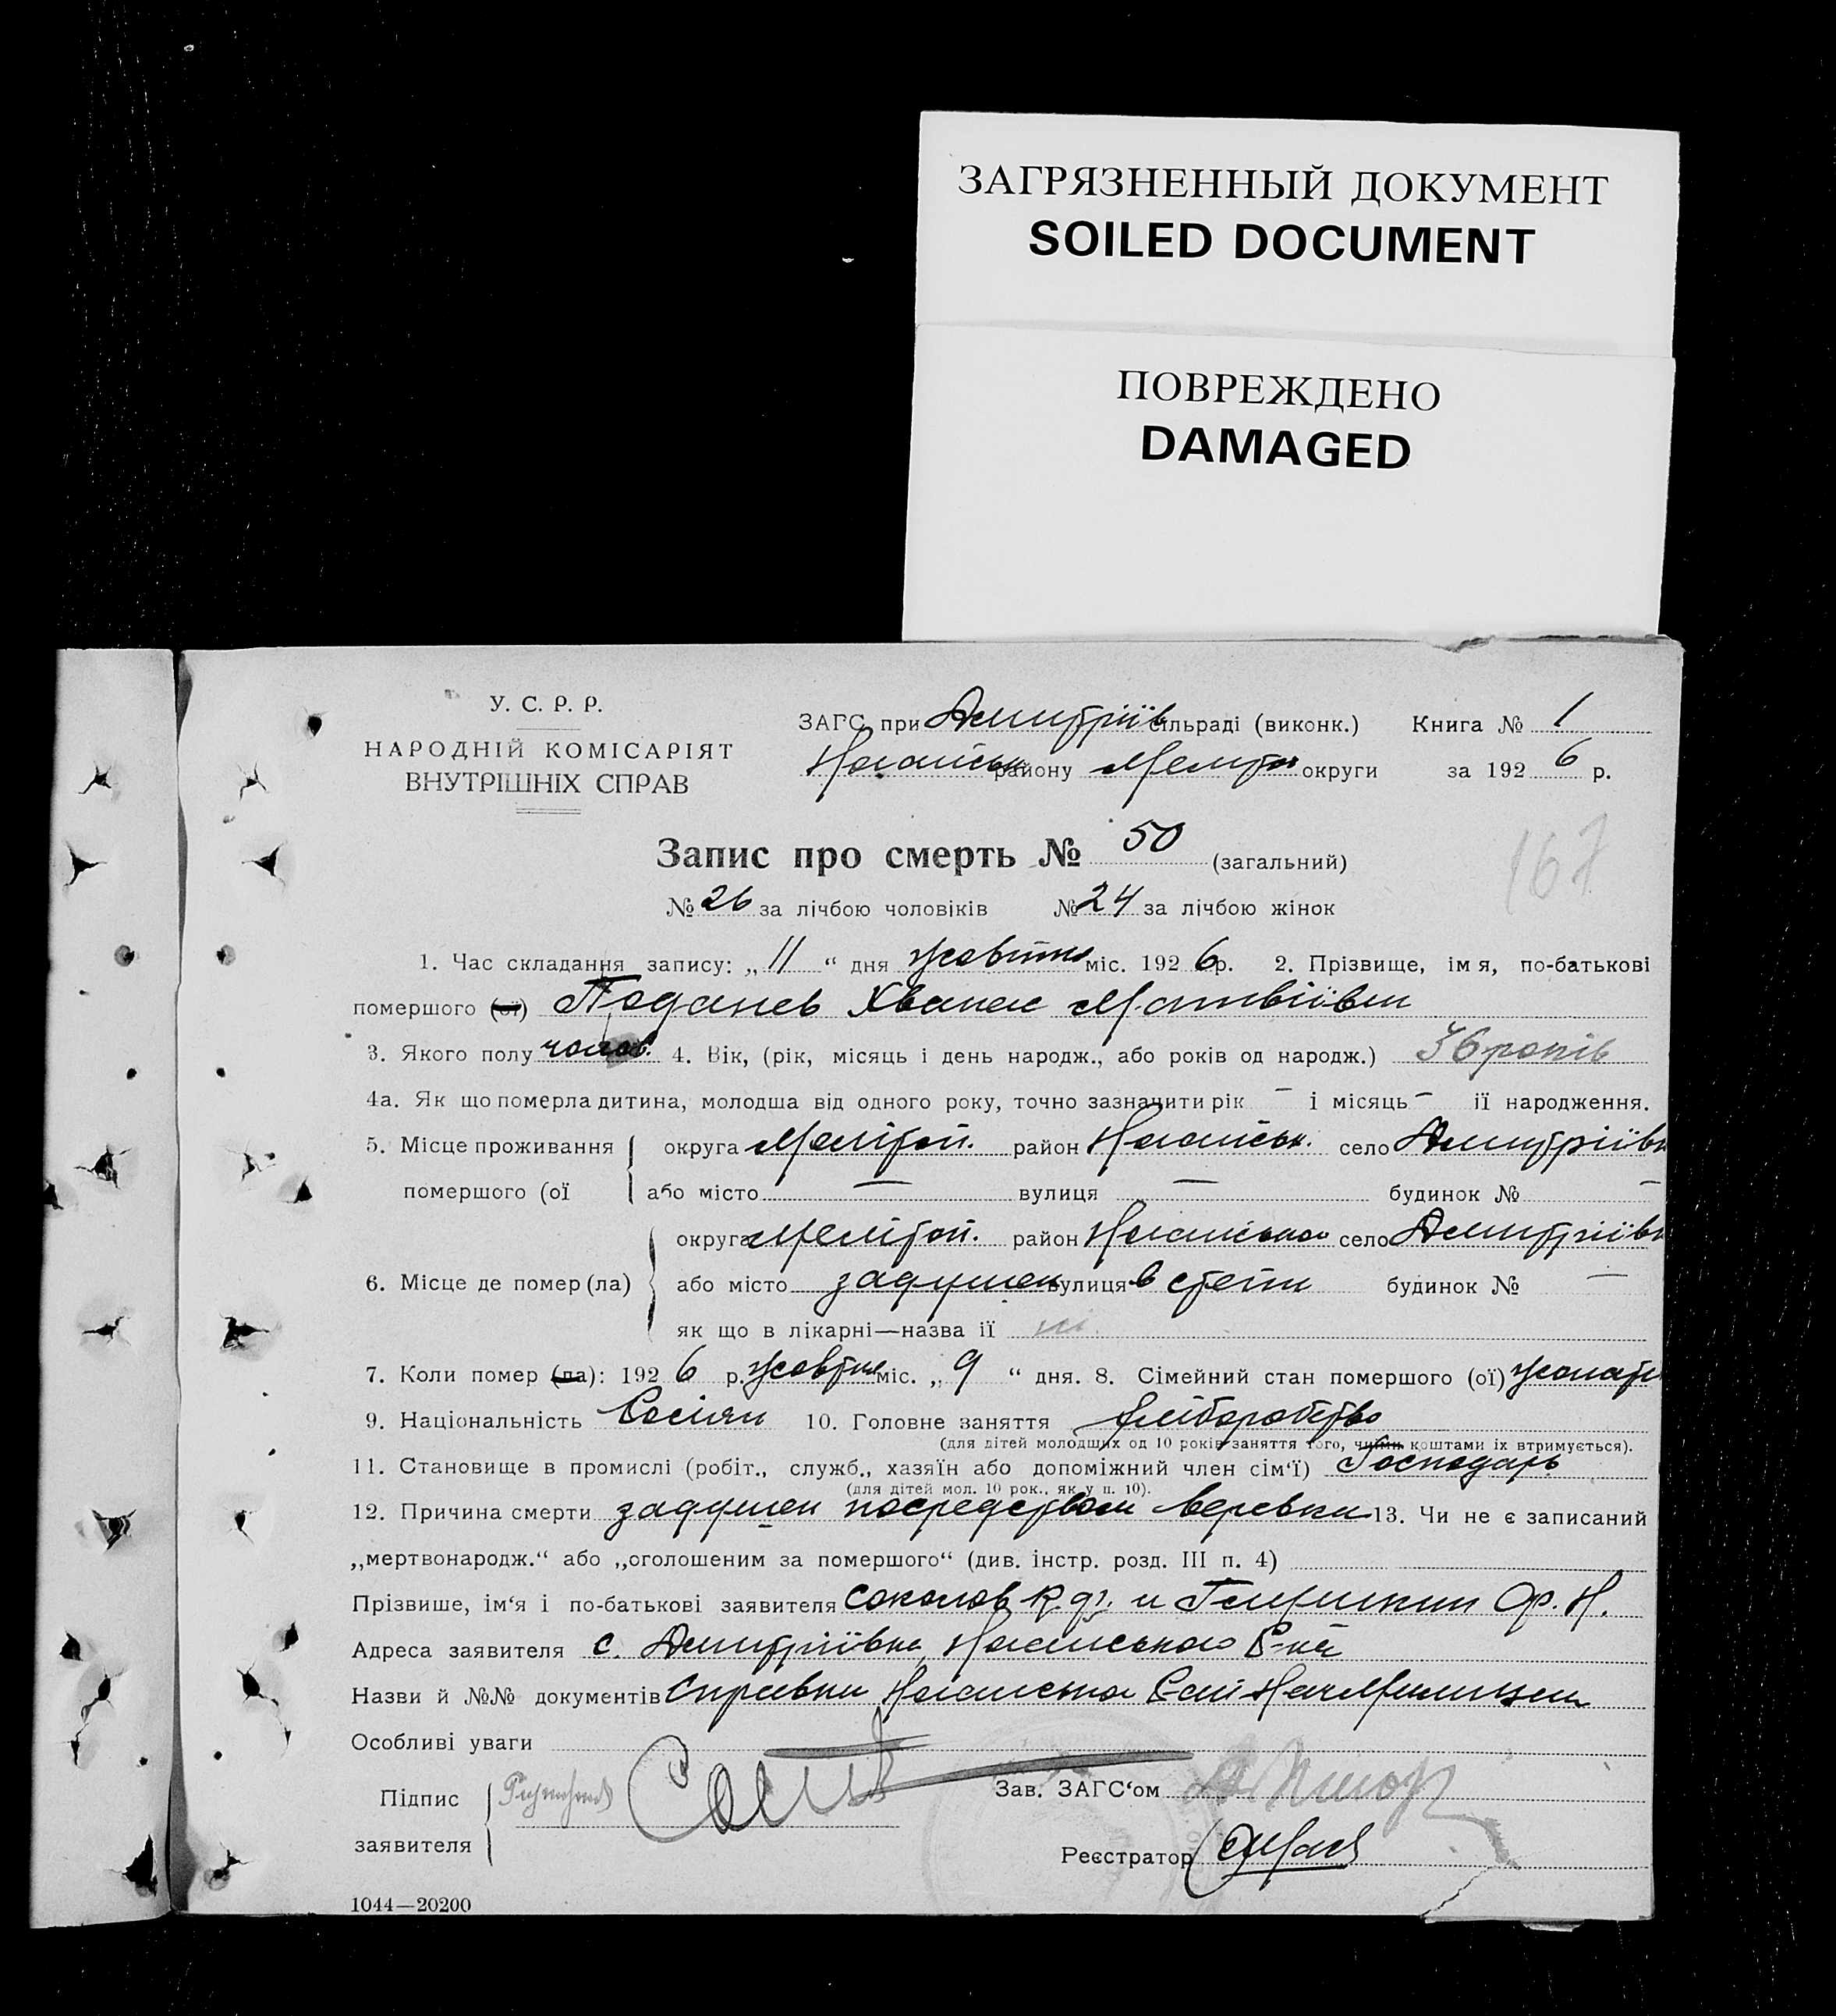 ЗАГРЯЗНЕННЫЙ ДОКУМЕНТ
SOILED DOCUMENT
ПОВРЕЖДЕНО
DAMAGED
У. С. Р. Р.
НАРОДНІЙ КОМІСАРІЯТ
ВНУТРІШНІХ СПРАВ
ЗАГС при Дмитріїв сільраді (виконк.) Книга № 1
Ногайськ району Меліто округи за 1926 р.
Запис про смерть № 50 (загальний)
167
№ 26 за лічбою чоловіків № 24 за лічбою жінок
1. Час складання запису: „ 11 “ дня жовтня міс. 1926 р. 2. Прізвище, імя, по-батькові
помершого (ої) Матвіївич
3. Якого полу чолов. 4. Вік, (рік, місяць і день народж., або років од народж.) 36 років
4а. Як що померла дитина, молодша від одного року, точно зазначити рік – і місяць – її народження.
5. Місце проживання округа Мелітоп. район Ногайськ. село Дмитріївк
помершого (ої або місто — вулиця — будинок № –
округа Мелітоп. район Ногайського село Дмитріївк
6. Місце де помер (ла) або місто задушен вулиця в степи будинок № —
як що в лікарні—назва ії
7. Коли помер (ла): 1926 р. жовтня міс. „ 9 “ дня. 8. Сімейний стан помершого (ої) жонат
9. Національність Росіян 10. Головне заняття хліборобство
(для дітей молодших од 10 років заняття того, чиїми коштами їх втримується).
11. Становище в промислі (робіт., служб., хазяїн або допоміжний член сім‘ї) Господарь
(для дітей мол. 10 рок., як у п. 10).
12. Причина смерти задушен посредством веревки 13. Чи не є записаний
„мертвонародж.“ або „оголошеним за помершого“ (див. інстр. розд. III п. 4)
Прізвише, ім‘я і по-батькові заявителя Соколов и Ф. Н.
Адреса заявителя с. Дмитріївка, Ногайського Р-на
Назви й №№ документів Справки Рай
Особливі уваги
Підпис
заявителя
Зав. ЗАГС‘ом
Реєстратор
1044—20200